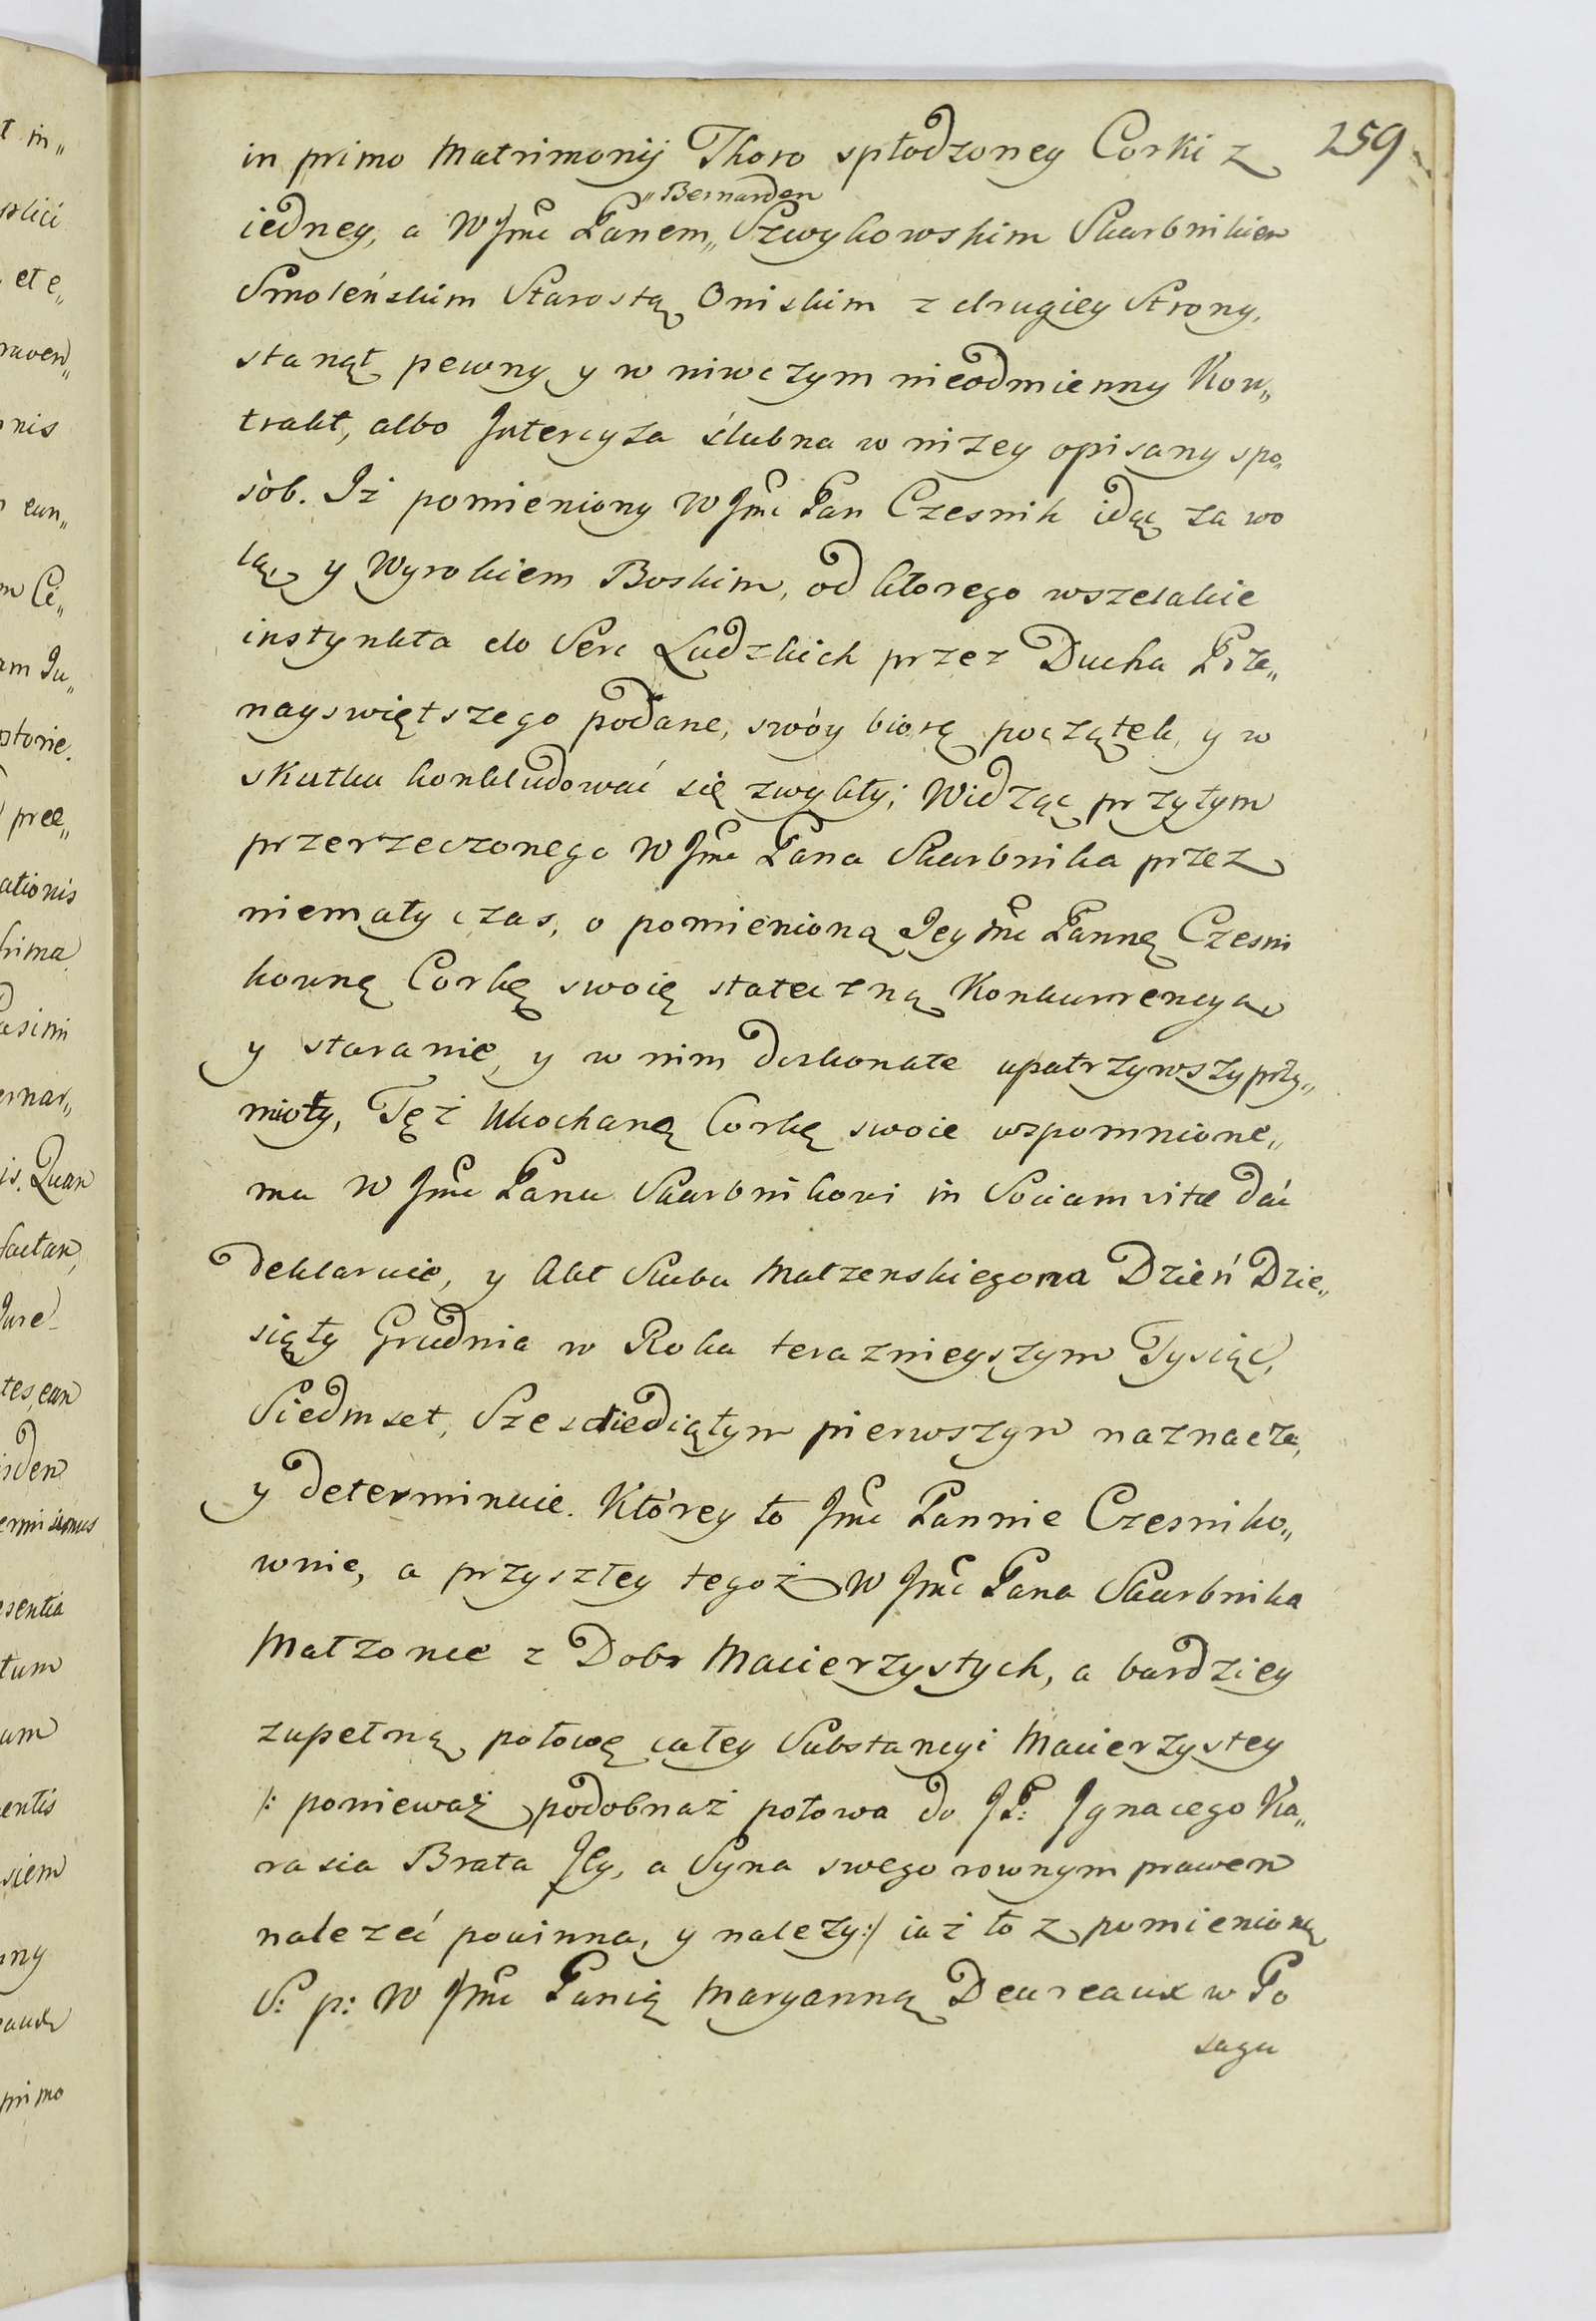 in primo Matrimonij Thoro spłodzoney Corki z 259
„Bernardem
iedney, a W Jmć Panem„ Szwykowskim Skarbnikiem
Smoleńskim Starostą Oniskim z drugiey Strony,
stanął pewny y w niwczym nieodmienny Kon„
trakt, albo Jntercyza ślubna w niżey opisany spo„
sòb. Jż pomieniony W Jmć Pan Czesnik idąc za wo
lą, y Wyrokiem Boskim, od ktorego wszelakie
instynkta do Serc Ludzkich przez Ducha Prze„
nayswiętszego podane, swóy biorą początek, y w
skutku konkludować się zwykły; Widząc przytym
przerzeczonego W Jmć Pana Skarbnika przez
niemały czas, o pomienioną Jey Mć Pannę Czesni
kownę Corkę swoię stateczną Konkurrencyą
y staranie, y w nim doskonałe upatrzywszy przy„
mioty, Tęż Ukochaną Corkę swoie wspomnione„
mu W Jmć Panu Skarbnikowi in Sociam vitæ dać
deklaruie, y Akt Slubu Małzenskiego na Dzień Dzie„
siąty Grudnia w Roku terazniejszym Tysiąc,
Siedmset, Szesdziesiątym pierwszym naznacza,
y determinuie. Którey to Jmć Pannie Czesniko„
wnie, a przyszłey tegoż W Jmć Pana Skarbnika
Małżonce z Dobr Macierzystych, a bardziey
zupełną połowę całey Substancyi Macierzystey
/: ponieważ podobnaż połowa do JP: Jgnacego Ka„
rasia Brata Jey, a Syna swego rownym prawem
należeć powinna, y należy:/ iaż to z pomienioną
S: p: W Jmć Panią Maryanną Deureaux w Po
sagu
et e„
nis
pree„
ationis
is. Quan
tes, ean
esentia
entis
primo